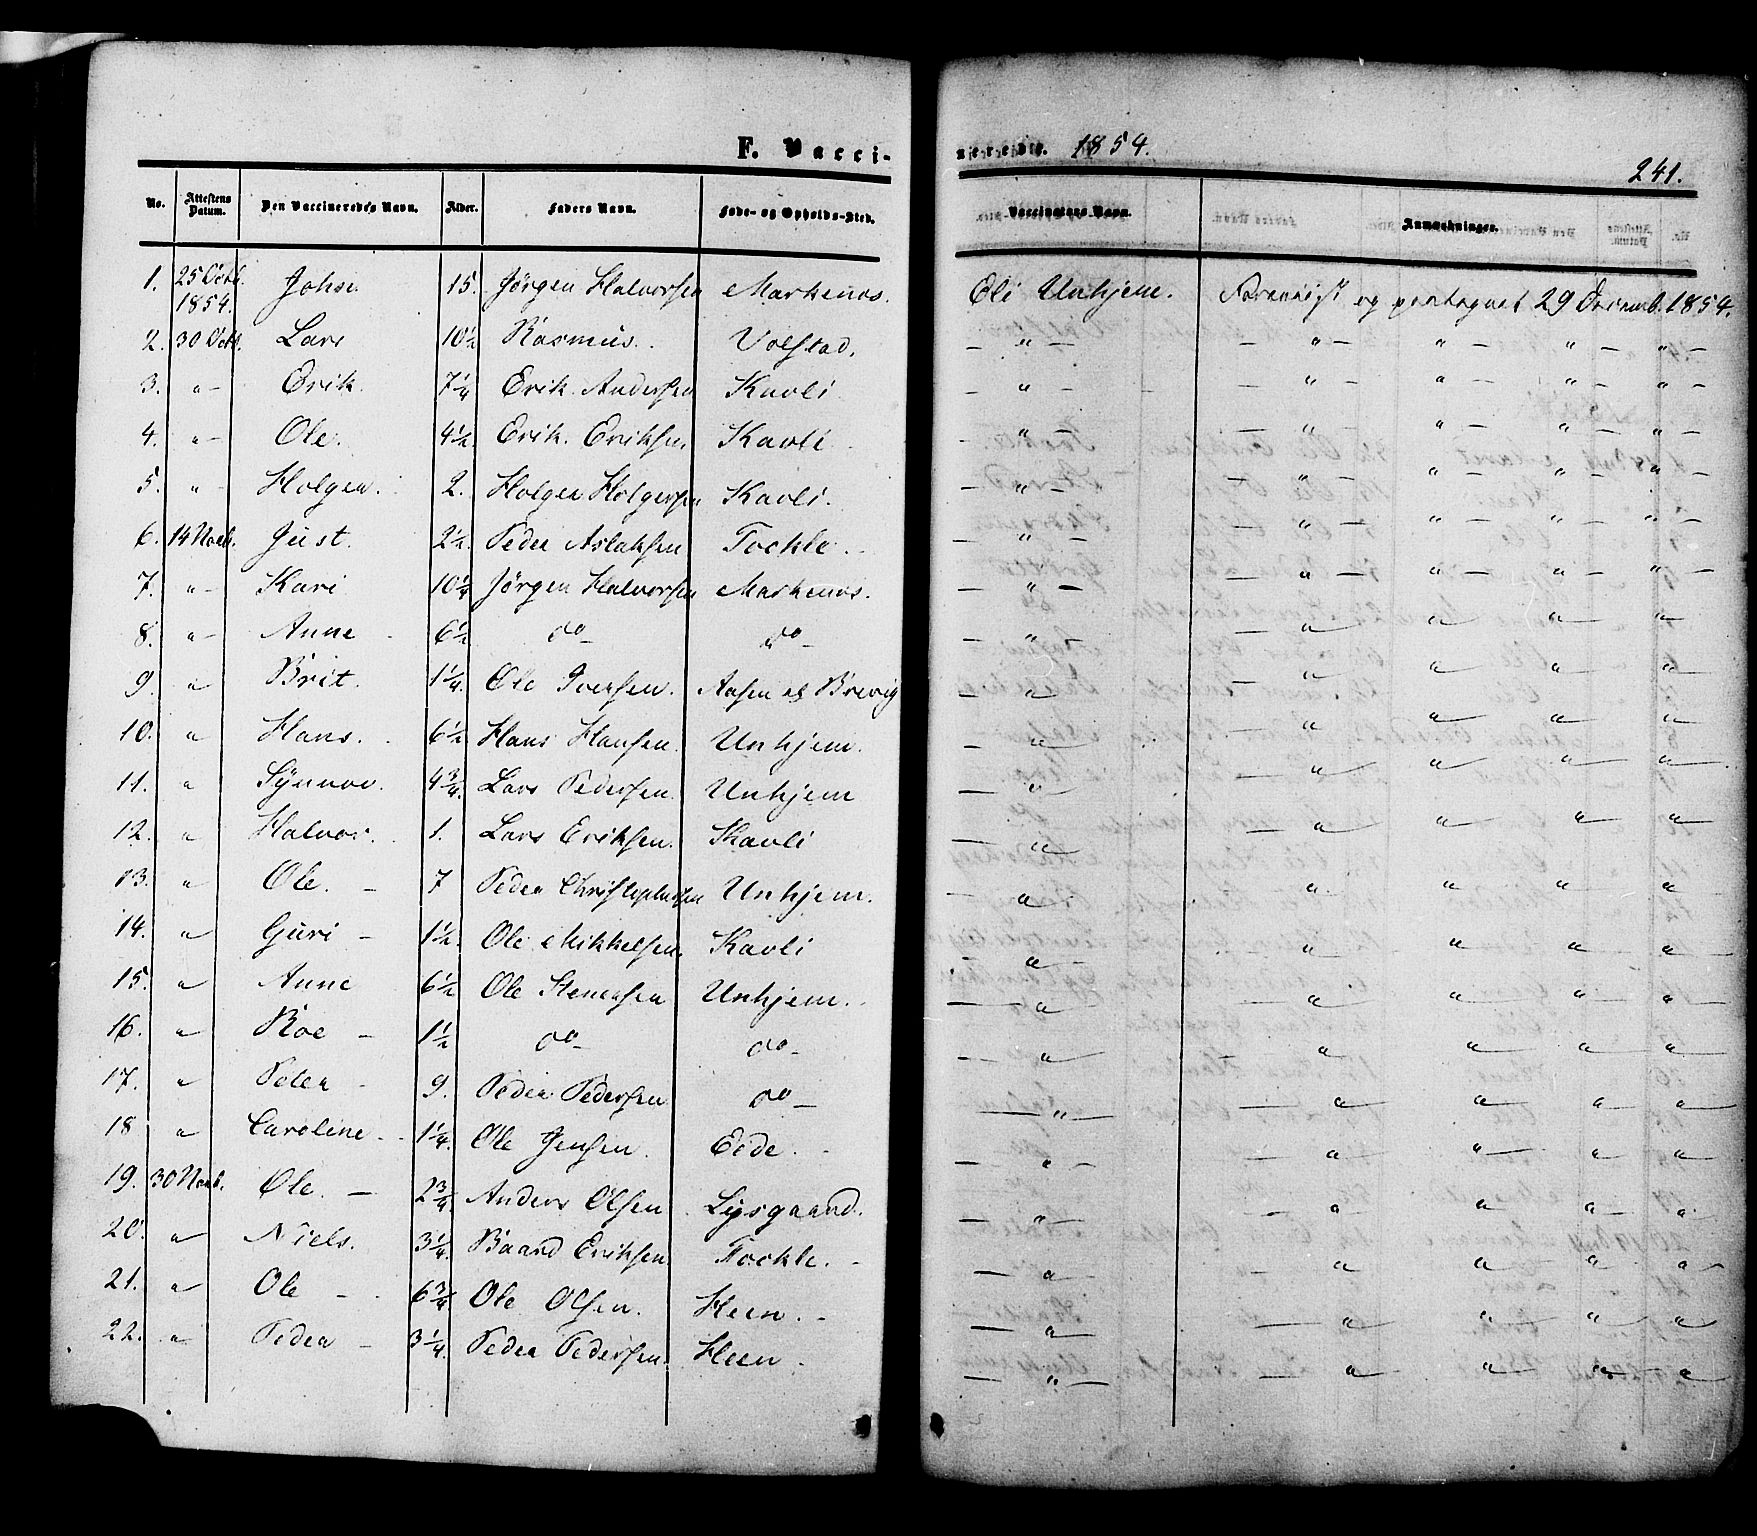 F. Vaccinerede. 1854.
241.
No. Attestens Datum. Den Vaccineredes Navn. Alder. Faders Navn. Føde- og Opholds-Sted. Vaccinateurs Navn. Anmærkninger.
1. 25 Octb. 1854. Johan 15. Jörgen Halvorsen Markenæs. Eli Unhjem. Forevist og paategnet 29 Decemb. 1854.
2. 30 Octb. Lars 10½ Rasmus. Volstad. — " — — " — " — " — " —
3. " — Erik 7¼ Erik Andersen Kavli — " — " — " — " — " —
4. " — Ole. 4½ Erik Eriksen Kavli — " — — " — " — " — " —
5. " — Holgen. 2. Holgen Holgersen Kavli. — " — — " — " — " — " —
6. 14 Novb. Just. 2½ Peder Aslaksen Tockle — " — — " — " — " — " —
7. " — Kari 10¼ Jörgen Halvorsen Markenæs. — " — — " — " — " — " —
8. " — Anne 6½ do — do — — " — — " " " "
9. " Brit. 1¼ Ole Iversen. Aasen og Brevig — " — " " " "
10. " Hans. 6½ Hans Hansen. Unhjem. — " " " " "
11. " Synnov. 4¾ Lars Pedersen. Unhjem — " — " " " "
12. " Halvor. 1. Lars Eriksen. Kavli — " — " " " "
13. " Ole. — 7 Peder Christophersen Unhjem. — " " " " "
14. " Guri — 1½. Ole Mikkelsen. Kavli — " — " " " "
15. " Anne 6½ Ole Stenersen Unhjem. — " — " " " "
16. " Roe — 1½ do — do — — " — " " " "
17. " Peder 9. Peder Pedersen do — — " — — " " " "
18 " Caroline. 1¼. Ole Jensen. Eide. — " — " " " "
19. 30 Novb. Ole. — 2¾. Anders Olsen Lysgaard. — " — " " " "
20. " Niels. 3¼. Baard Eriksen Tockle. — " — " " " "
21. " Ole — 6¾ Ole Olsen. Heen. — " — " " " "
22. " Peder — 3¼. Peder Pedersen. Heen. — " — — " " " "